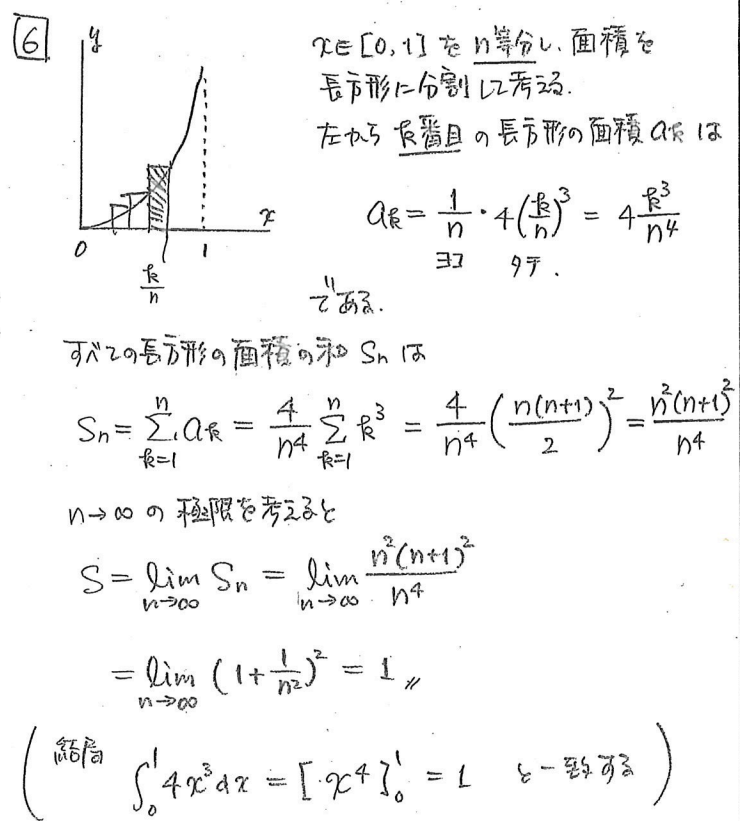 6
y
x∈[0,1]を n等分し、面積を
長方形に分割して考える.
左から k番目 の長方形の面積 ak は
ak = 1/n · 4(k/n)^3 = 4 k^3/n^4
ヨコ タテ.
である.
x
0
k/n
1
すべての長方形の面積の和 Sn は
Sn = Σ_{k=1}^{n} ak = 4/n^4 Σ_{k=1}^{n} k^3 = 4/n^4 (n(n+1)/2)^2 = n^2(n+1)^2/n^4
n→∞ の 極限を考えると
S = lim_{n→∞} Sn = lim_{n→∞} n^2(n+1)^2/n^4
= lim_{n→∞} (1+1/n^2)^2 = 1 〃
( 結局 ∫_0^1 4x^3dx = [x^4]_0^1 = 1 と一致する )